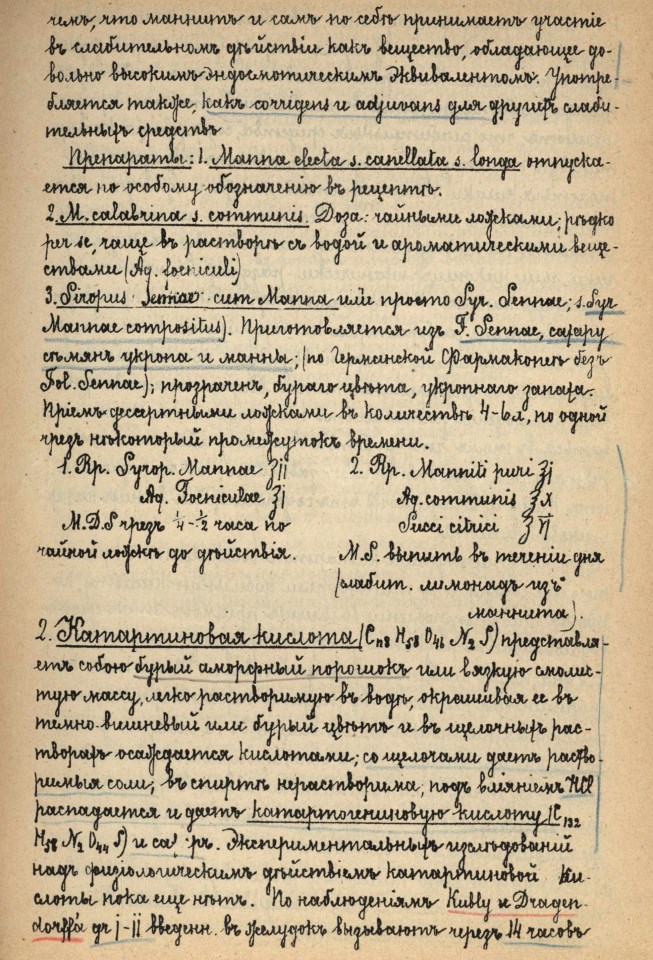 чемъ, что маннитъ и самъ по себѣ принимаетъ участіе
въ слабительномъ дѣйствіи какъ вещество, обладающее до-
вольно высокимъ эндосмотическимъ эквивалентомъ. Употре-
бляется также, какъ corrigens и adjuvans для другихъ слаби-
тельныхъ средствъ
Препараты: 1. Manna electa s. canellata s. longa отпуска-
ется по особому обозначенію въ рецептѣ.
2. M. calabrina s. communis. Доза: чайными ложками; рѣдко
per se, чаще въ растворѣ съ водой и ароматическими веще-
ствами (Aq. foeniculi)
3. Siropus Sennae cum Manna или просто Syr. Sennae; s. Syr
Mannae compositus). Приготовляется изъ F. Sennae, сахару
сѣмянъ укропа и манны; (по Германской Фармакопеѣ безъ
Fol. Sennae); прозраченъ, бураго цвѣта, укропнаго запаха.
Пріемъ дессертными ложками въ количествѣ 4-6 л, по одной
чрезъ нѣкоторый промежутокъ времени.
1. Rp. Syrop. Mannae ʒii
Aq. Foeniculae ʒj
M.D.S чрезъ ¼-½ часа по
чайной ложкѣ до дѣйствія.
2. Rp. Manniti puri ʒj
Aq. communis ʒx
Succi citrici ʒvj
M.S. выпить въ теченіи дня
(слабит. лимонадъ изъ
маннита).
2. Катартиновая кислота (C₁₁₈ H₅₈ O₄₆ N₂ S) представля-
етъ собою бурый аморфный порошокъ или вязкую смолис-
тую массу, легко растворимую въ водѣ, окрашивая ее въ
темно-вишневый или бурый цвѣтъ и въ щелочныхъ рас-
творахъ осаждается кислотами; со щелочами даетъ раство-
римыя соли; въ спиртѣ нерастворима; подъ вліяніемъ HCl
распадается и даетъ катартогениновую кислоту (C₁₃₂
H₅₈ N₂ O₄₄ S) и сахаръ. Экспериментальныхъ изслѣдованій
надъ физіологическимъ дѣйствіемъ катартиновой ки-
слоты пока еще нѣтъ. По наблюденіямъ Kubly и Dragen-
dorff'а gr j-ii введенн. въ желудокъ вызываютъ черезъ 14 часовъ